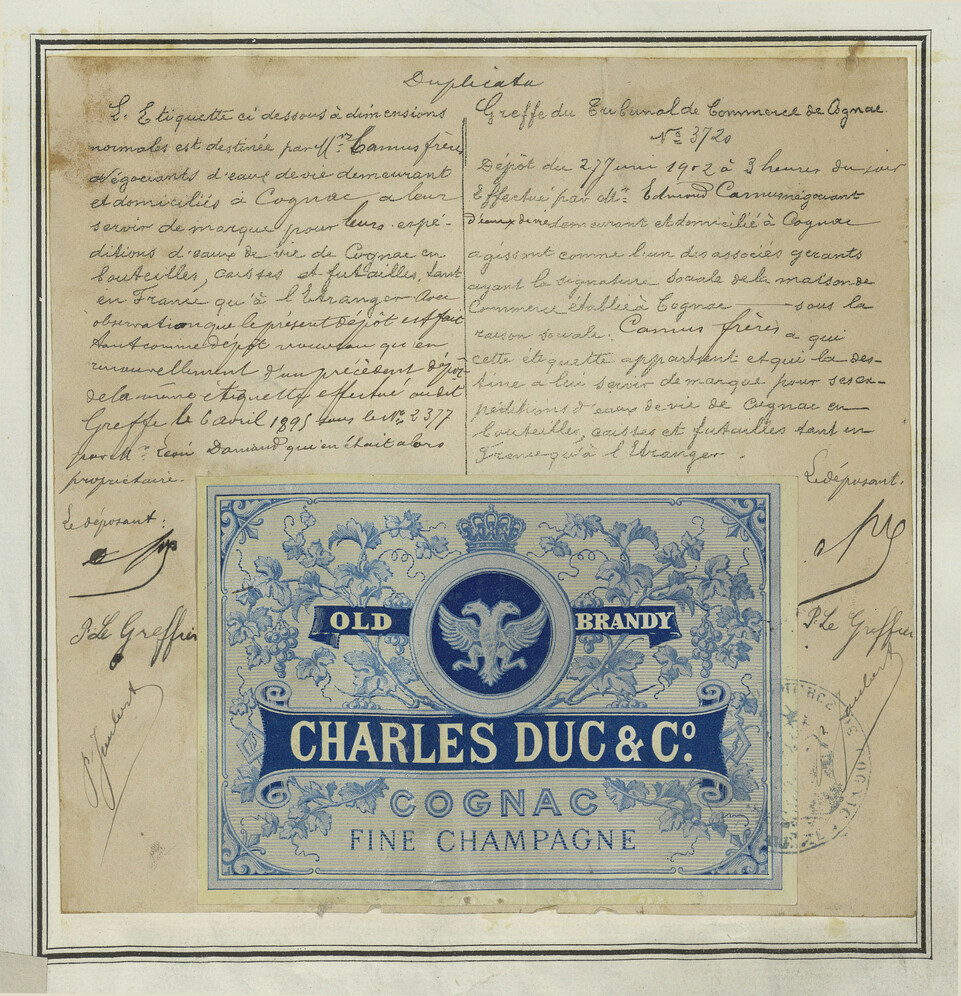 Duplicata
L'Etiquette ci dessous à dimensions
normales est destinée par Mrs Camus frères
Négociants d'eaux de vie demeurant
et domiciliés à Cognac a leur
servir de marque pour leurs expé-
ditions d'eaux de vie de Cognac en
bouteilles, caisses et futailles, tant
en France qu'à l'Etranger Avec
observation que le présent dépôt est fait
tant comme dépôt nouveau qu'en
renouvellement d'un précédent dépôt
de la même étiquette effectué au dit
Greffe le 6 avril 1895 sous le No 2377
par Mr. Léon Damand qui en était alors
propriétaire.
Le déposant:
P. Le Greffier
P. Joubert
Greffe du Tribunal de Commerce de Cognac
No 3720
Dépôt du 27 Juin 1902 à 3 heures du soir
Effectué par Mr. Edmond Camus négociant
d'eaux de vie demeurant et domicilié à Cognac
agissant comme l'un des associés gérants
ayant la signature sociale de la maison de
Commerce établie à Cognac sous la
raison sociale: Camus frères a qui
cette étiquette appartient et qui la des-
tine a lui servir de marque pour ses ex-
péditions d'eaux de vie de Cognac en
bouteilles, caisses et futailles tant en
France qu'à l'Etranger.
Le déposant.
P. Le Greffier
Joubert
OLD BRANDY
CHARLES DUC & Co.
COGNAC
FINE CHAMPAGNE